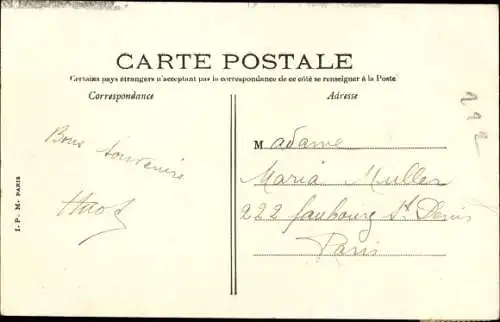 CARTE POSTALE
Certains pays étrangers n'acceptant pas la correspondance de ce côté se renseigner à la Poste
Correspondance
Adresse
222
Bons souvenirs
Madame
Maria Muller
222 faubourg St Denis
Paris
I. P. M. PARIS